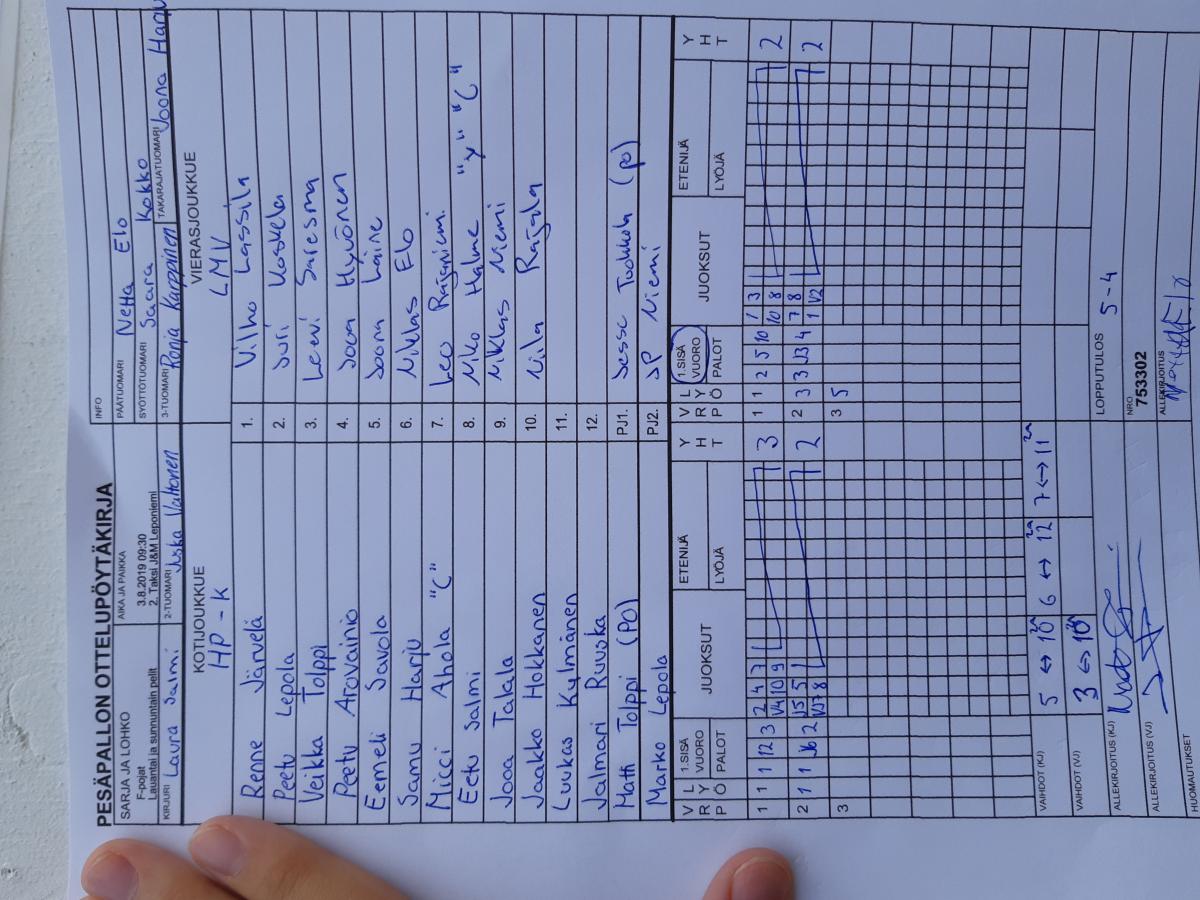 PESÄPALLON OTTELUPÖYTÄKIRJA
SARJA JA LOHKO
F-pojat
Lauantai ja sunnuntain pelit
AIKA JA PAIKKA
3.8.2019 09:30
2. Taksi J&M Leponiemi
INFO
PÄÄTUOMARI Netta Elo
SYÖTTÖTUOMARI Saara Kokko
KIRJURI Laura Salmi
2-TUOMARI Valtonen
3-TUOMARI Ronja Karppinen
TAKARAJATUOMARI Joona Harju
KOTIJOUKKUE VIERASJOUKKUE
HP-K LMV
Renne Järvelä 1. Vilho Lassila
Peetu Lepola 2. Koskela
Veikka Tolppi 3. Leevi Saresma
Peetu Arovainio 4. Joova Hyvönen
Eemeli Savola 5. Joona Laine
Samu Harju 6. Niklas Elo
Micci Ahola "C" 7. Leo Rajaniemi
Eetu Salmi 8. Niko Halme "y" "C"
Jooa Talala 9. Niklas Niemi
Jaakko Hokkanen 10. Niila Rajala
Luukas Kylmänen 11.
Jalmari Ruuska 12.
Matti Tolppi (PO) PJ1. (po)
Marko Lepola PJ2. JP Niemi
V R P L Y Ö 1.SISÄ VUORO PALOT JUOKSUT ETENIJÄ LYÖJÄ Y H T
V R P L Y Ö 1.SISÄ VUORO PALOT JUOKSUT ETENIJÄ LYÖJÄ Y H T
1 1 1 12 3 2 4 7 3
V4 10 9
1 1 2 5 10 1 3 2
10 8
2 1 1 J6 2 J5 5 2
VJ7 8
2 3 3 J3 4 7 8 2
1 V2
3
3 5
VAIHDOT (KJ) 5 ↔ 10 6 ↔ 12 7 ↔ 11
VAIHDOT (VJ) 3 ↔ 10
ALLEKIRJOITUS (KJ)
LOPPUTULOS 5-4
ALLEKIRJOITUS (VJ)
NRO
753302
ALLEKIRJOITUS
HUOMAUTUKSET